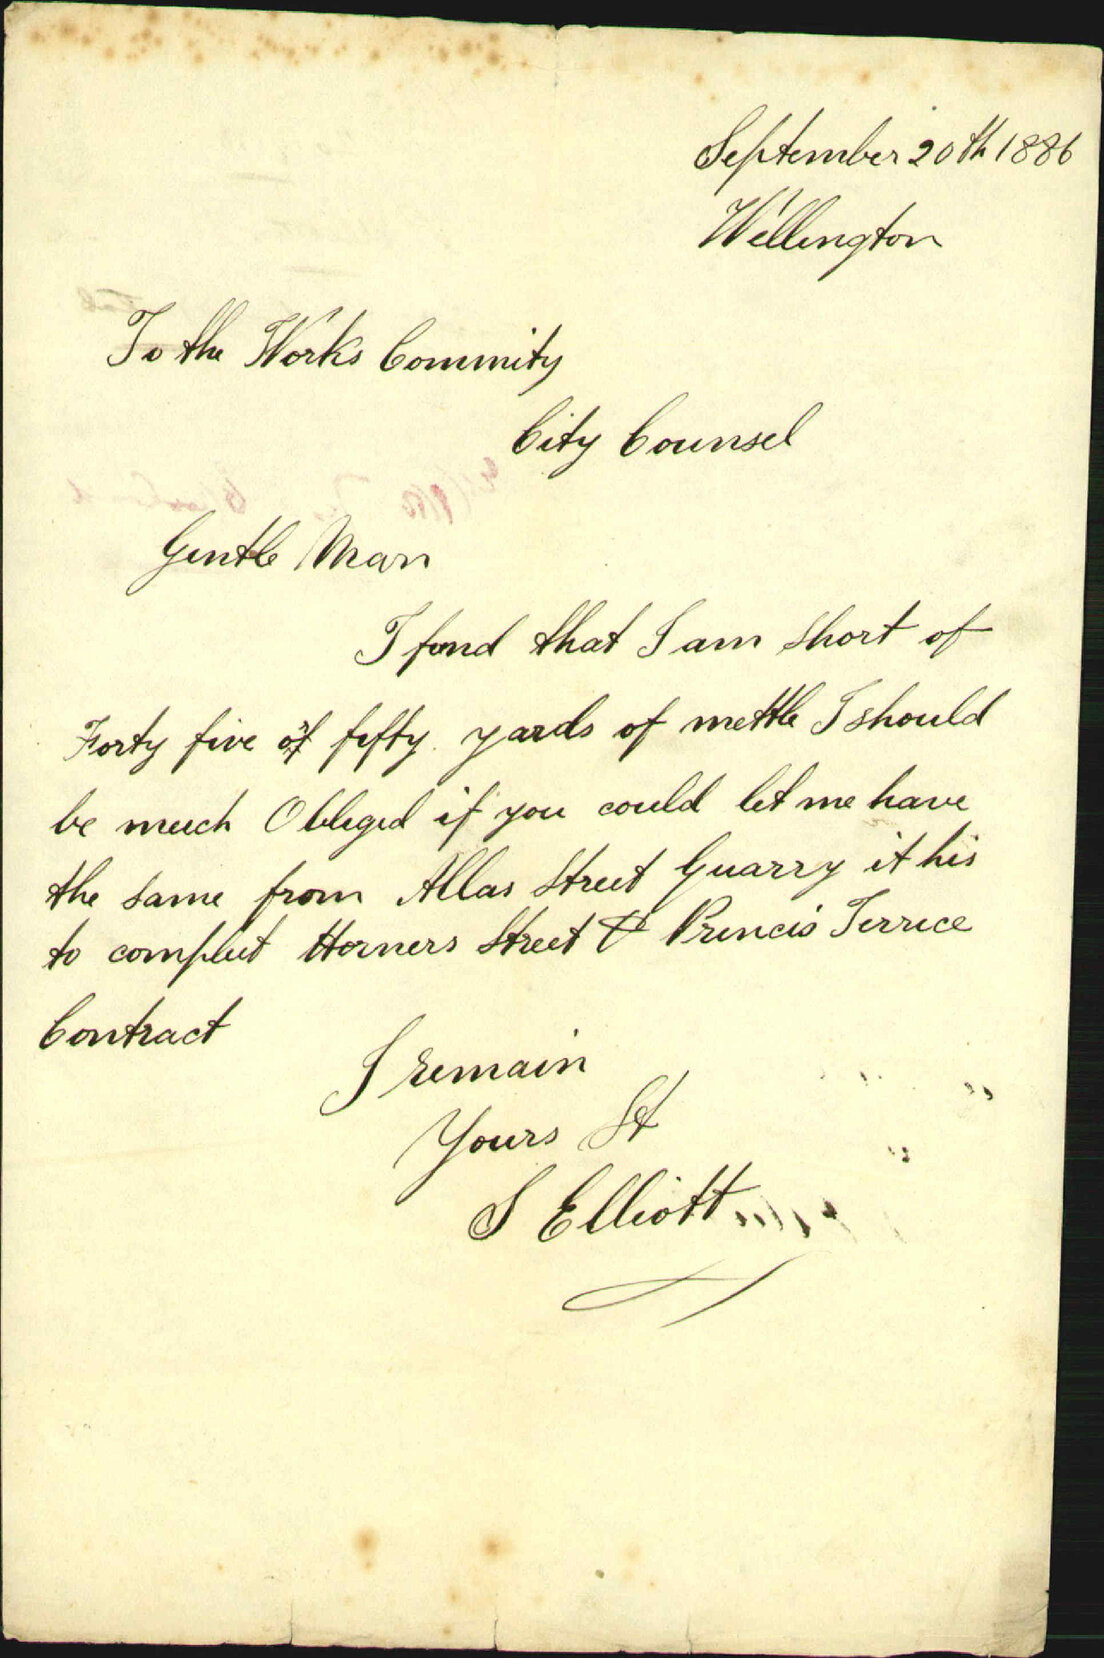 September 20th 1886
Wellington
To the Works Commity
City Counsel
Gentle Man
I find that I am short of
Forty five or fifty yards of mettle I should
be much Obliged if you could let me have
the same from Allas Street Quarry it his
to compleet Horners Street & Princis Terrece
Contract
I remain
Yours St
S Elliott